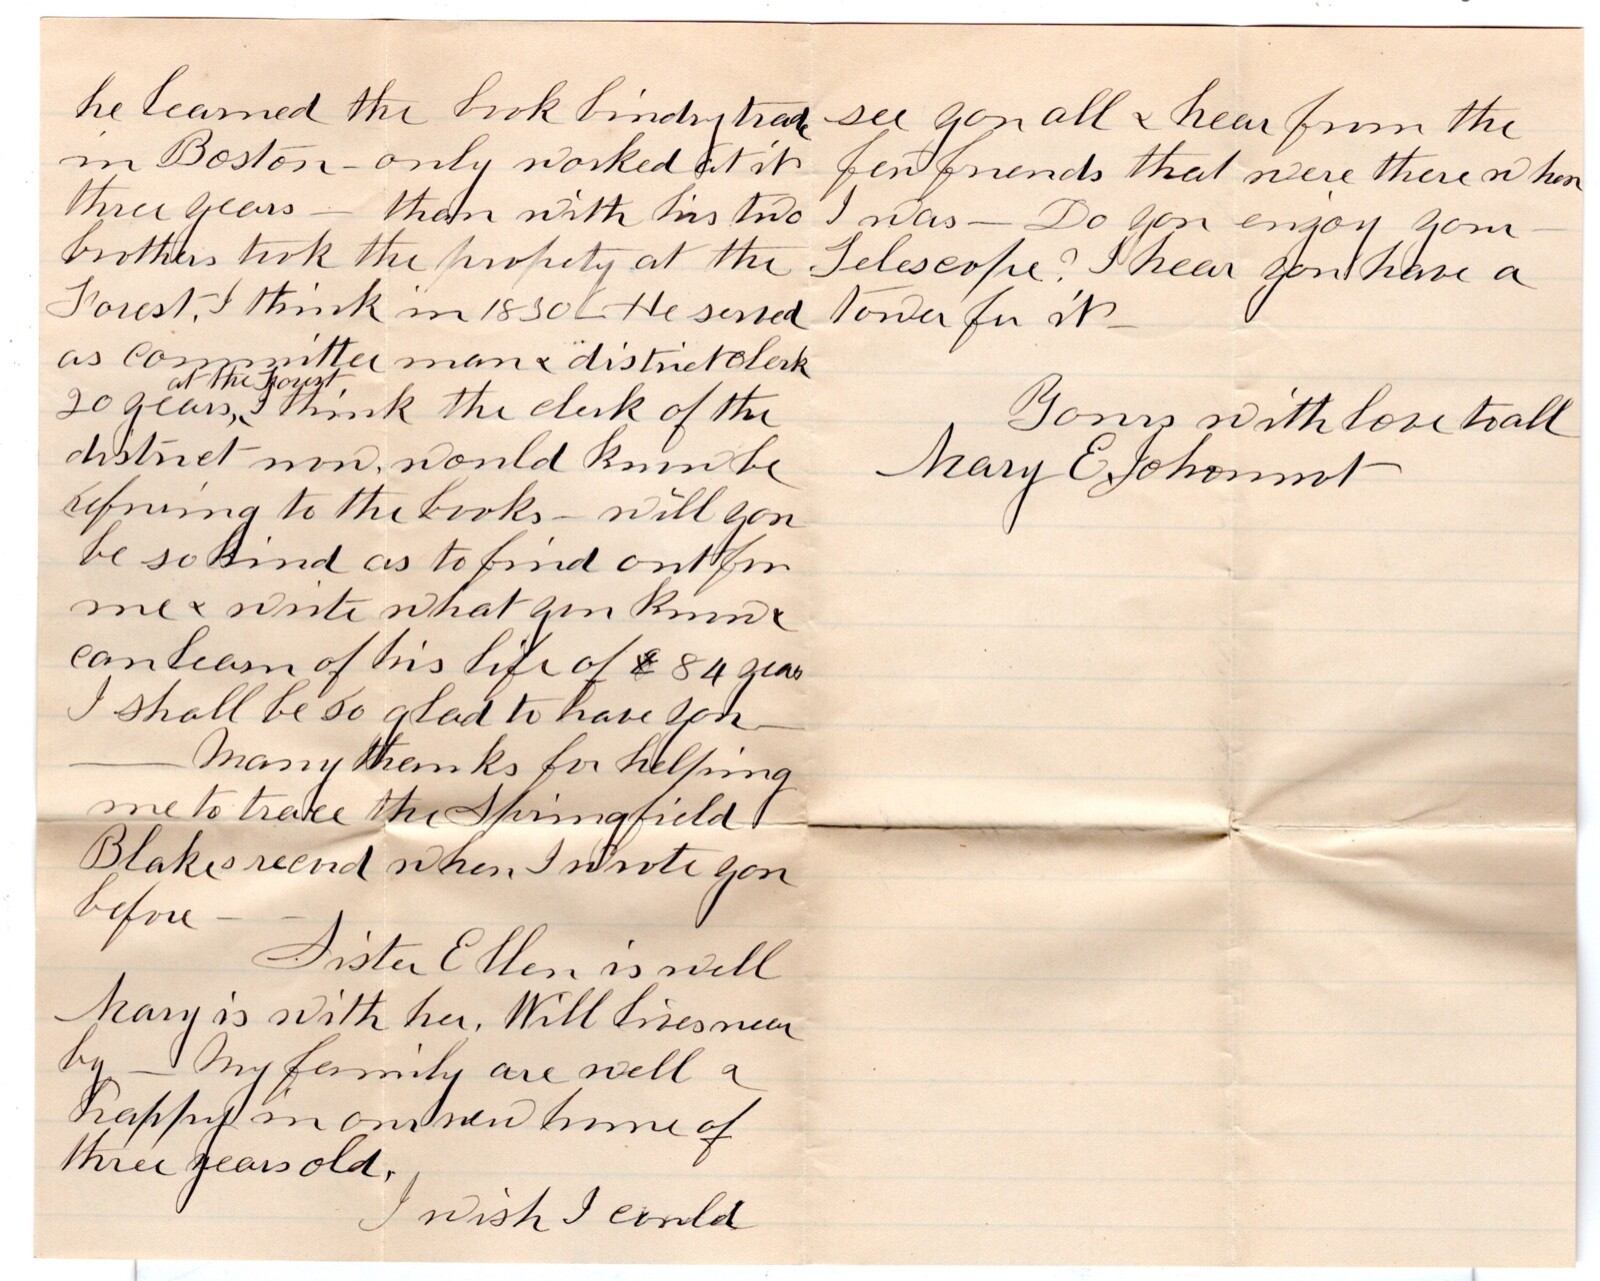 he learned the book bindry trade
in Boston - only worked at it
three years - than with his two
brothers took the propety at the
Forest, I think in 1830 - He served
as committee man & district clerk
at the Forest
20 years, I think the clerk of the
district now, would know be
refering to the books - will you
be so kind as to find out for
me & write what you know &
can learn of his life of 84 years
I shall be so glad to have you -
- Many thanks for helping
me to trace the Springfield
Blakes record when I wrote you
before -
Sister Ellen is well
Mary is with her, Will lives near
by - My family are well &
happy in our new home of
three years old.
I wish I could
see you all & hear from the
few friends that were there when
I was - Do you enjoy your
Telescope? I hear you have a
tower for it -
Yours with love to all
Mary E Johonnot